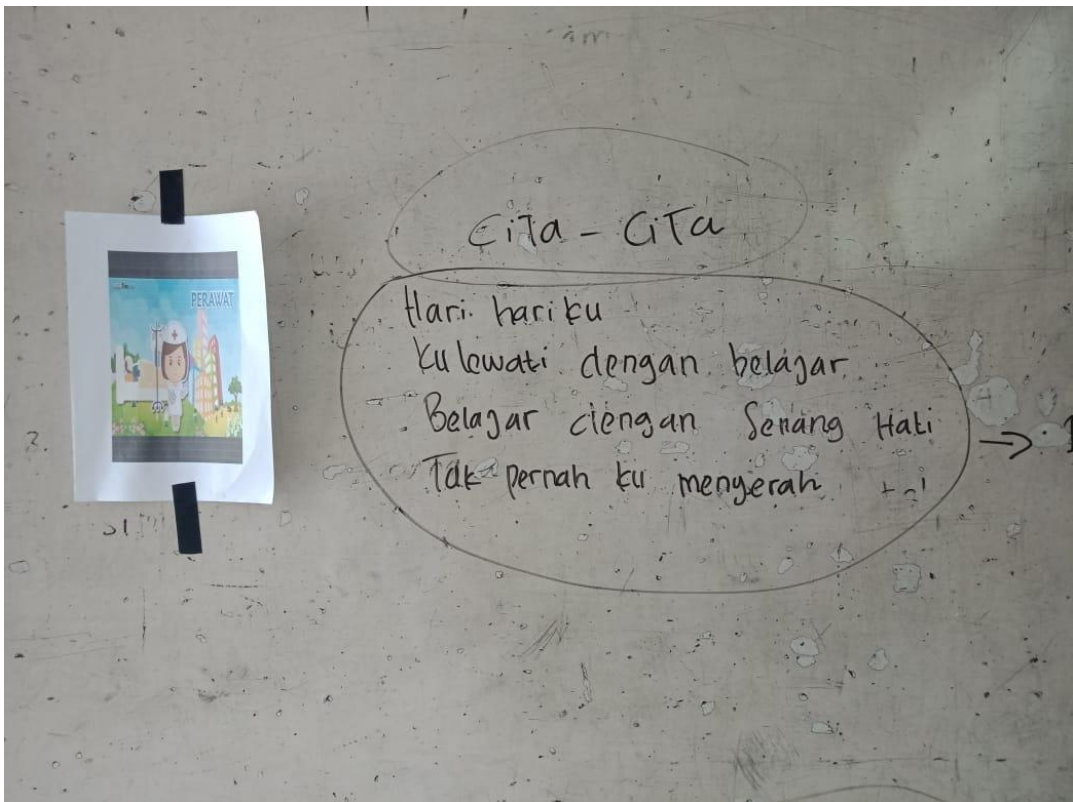 PERAWAT
CiTa - CiTa
Hari hariku
Ku lewati dengan belajar
Belajar dengan Senang Hati
Tak pernah ku menyerah
3.